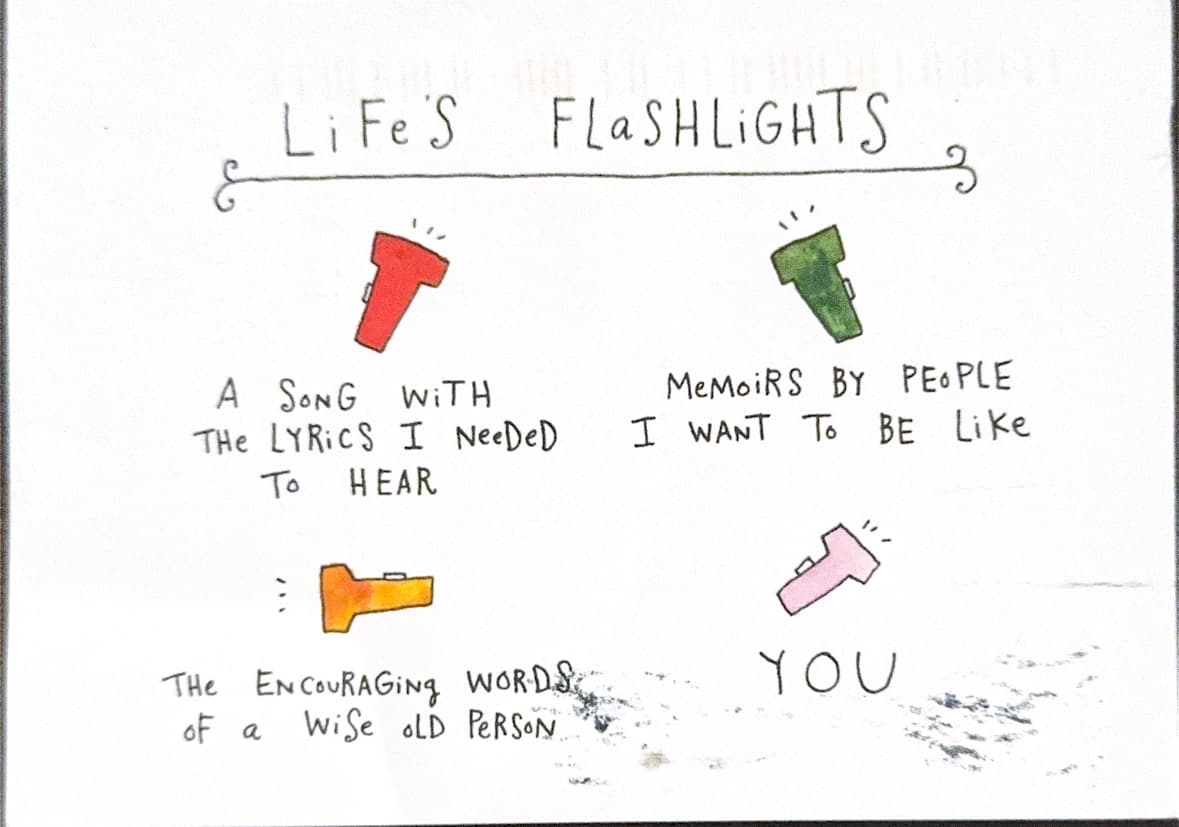 LiFe'S FLaSHLiGHTS
A SONG WiTH
THe LYRiCS I NeeDeD
To HEAR
MeMoiRS BY PEoPLE
I WANT To BE LiKe
THe ENCouRAGiNg WORDS
oF a WiSe oLD PeRSoN
YOU